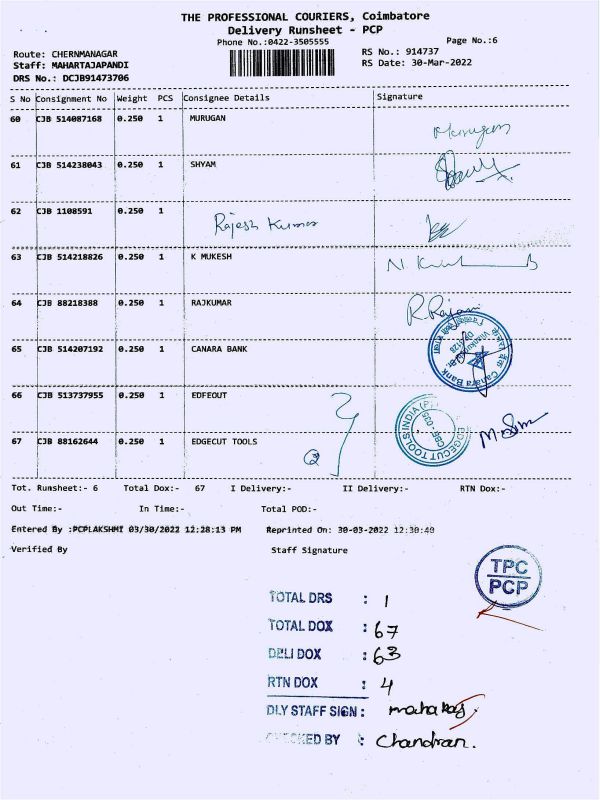 THE PROFESSIONAL COURIERS, Coimbatore
Delivery Runsheet - PCP
Phone No.:0422-3505555 Page No.:6
Route: CHERNMANAGAR RS No.: 914737
Staff: MAHARTAJAPANDI RS Date: 30-Mar-2022
DRS No.: DCJB91473706
S No Consignment No Weight PCS Consignee Details Signature
60 CJB 514087168 0.250 1 MURUGAN Murugan
61 CJB 514238043 0.250 1 SHYAM
62 CJB 1108591 0.250 1 Rajesh Kumar
63 CJB 514218826 0.250 1 K MUKESH
64 CJB 88218388 0.250 1 RAJKUMAR
65 CJB 514207192 0.250 1 CANARA BANK Canara Bank
66 CJB 513737955 0.250 1 EDFEOUT
67 CJB 88162644 0.250 1 EDGECUT TOOLS EDGECUT TOOLS INDIA (P)
Tot. Runsheet:- 6 Total Dox:- 67 I Delivery:- II Delivery:- RTN Dox:-
Out Time:- In Time:- Total POD:-
Entered By :PCPLAKSHMI 03/30/2022 12:28:13 PM Reprinted On: 30-03-2022 12:30:40
Verified By Staff Signature
TPC
PCP
TOTAL DRS : 1
TOTAL DOX : 67
DELI DOX : 63
RTN DOX : 4
DLY STAFF SIGN :
CHECKED BY : Chandran.